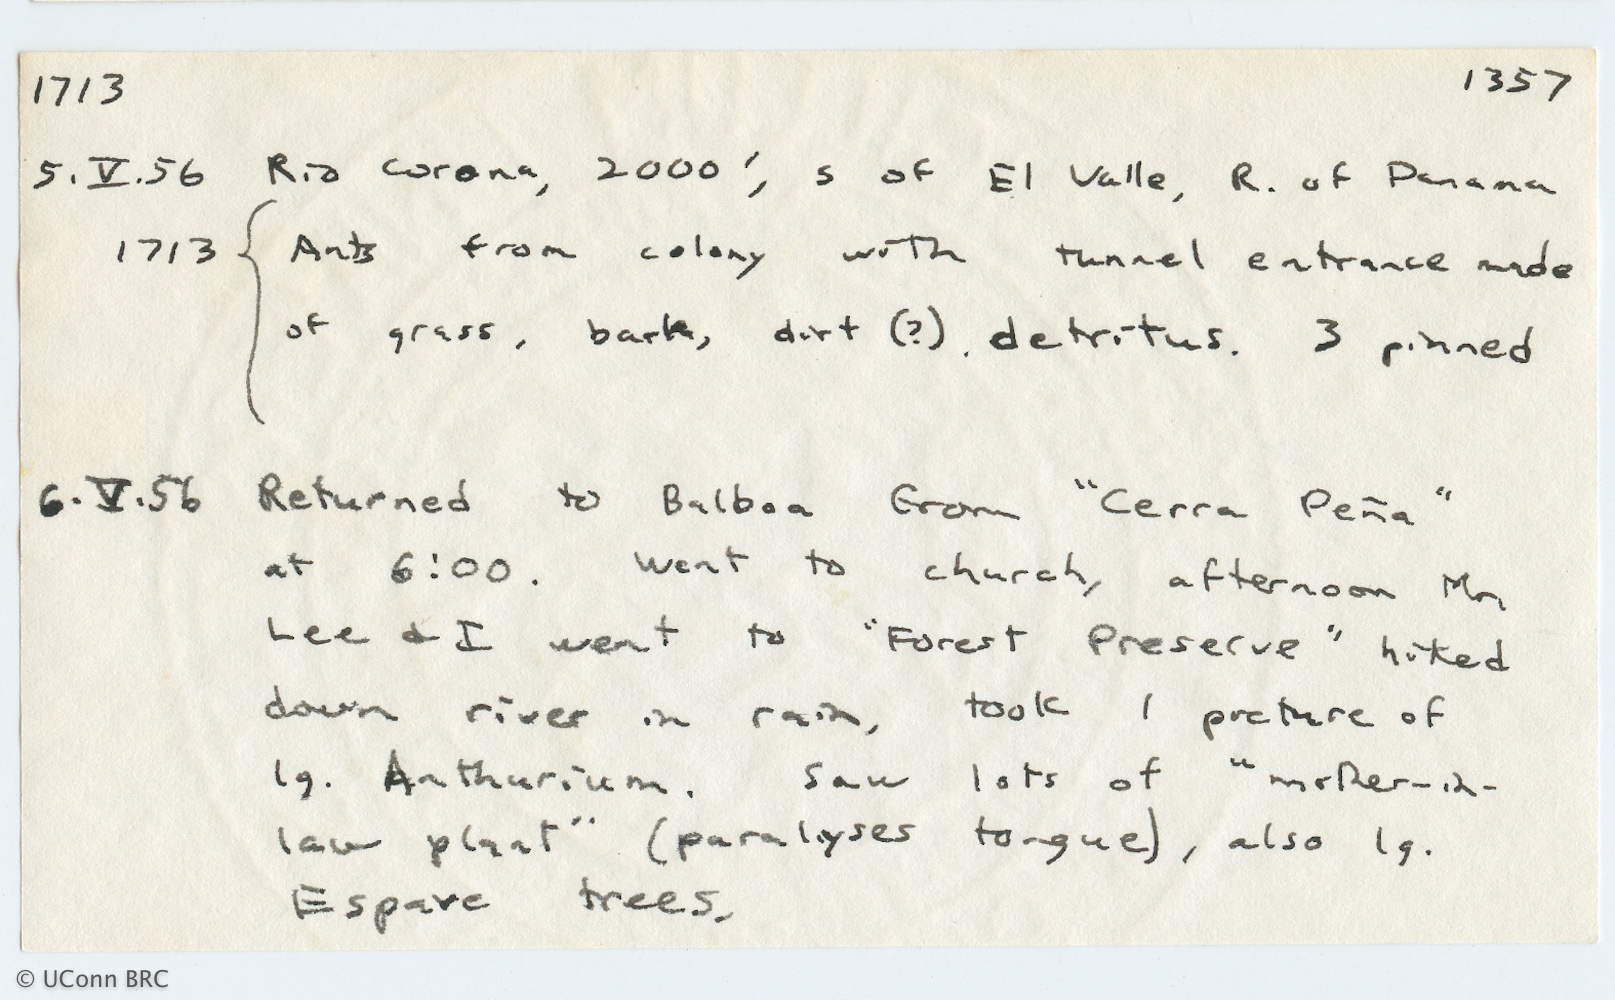 1713 1357
5.V.56 Rio Corona, 2000', S of El Valle, R. of Panama
1713 { Ants from colony with tunnel entrance made
of grass, bark, dirt (?), detritus. 3 pinned
6.V.56 Returned to Balboa from "Cerra Peña"
at 6:00. Went to church, afternoon Mr
Lee & I went to "Forest Preserve" hiked
down river in rain, took 1 picture of
lg. Anthurium. Saw lots of "mother-in-
law plant" (paralyses tongue), also lg.
Espave trees.
© UConn BRC